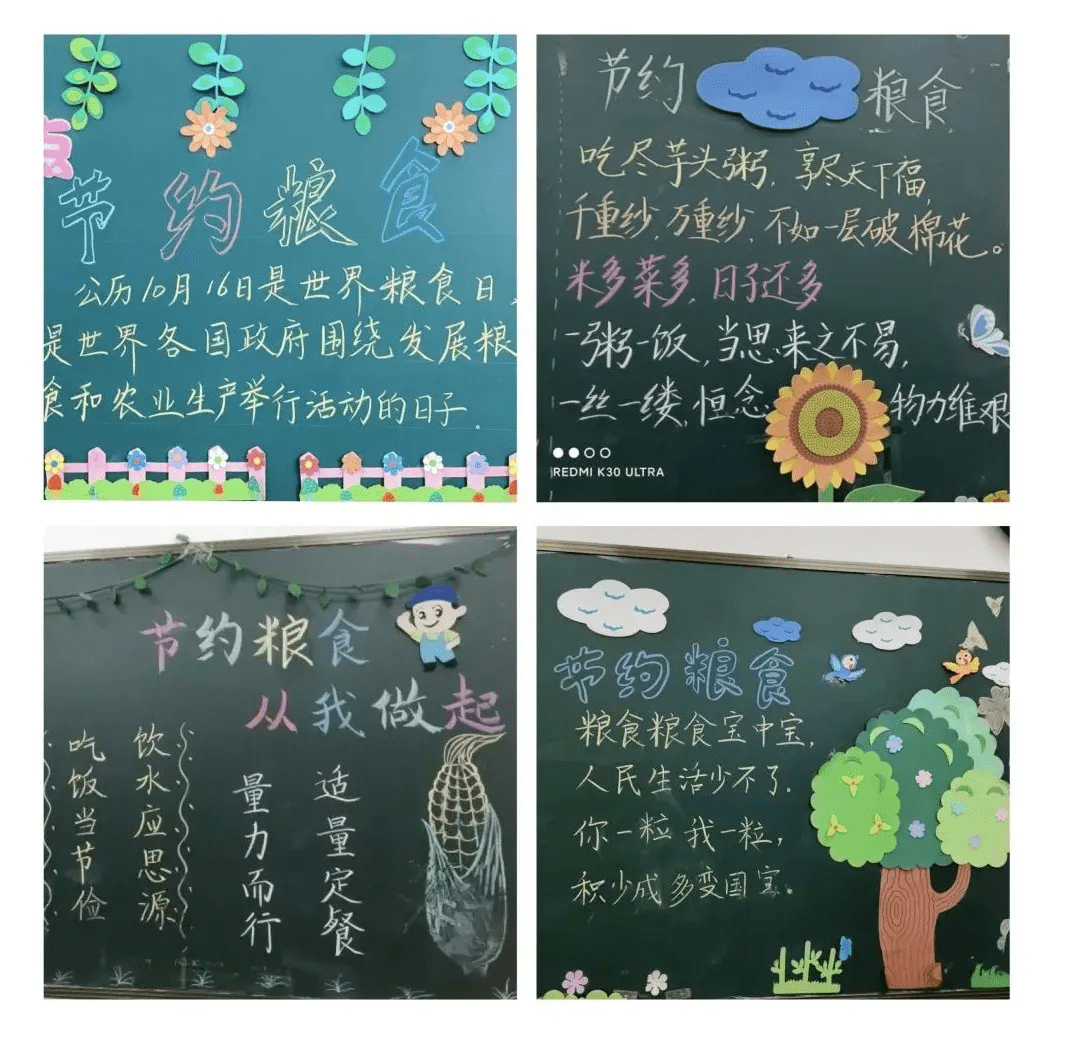 节约粮食
公历10月16日是世界粮食日,
是世界各国政府围绕发展粮
食和农业生产举行活动的日子.
节约 粮食
吃尽芋头粥,享尽天下福,
千重纱,万重纱,不如一层破棉花。
米多菜多,日子还多
一粥一饭,当思来之不易,
一丝一缕,恒念 物力维艰
REDMI K30 ULTRA
节约粮食
从我做起
适量定餐
量力而行
饮水应思源
吃饭当节俭
节约粮食
粮食粮食宝中宝,
人民生活少不了.
你一粒 我一粒,
积少成多变国宝。